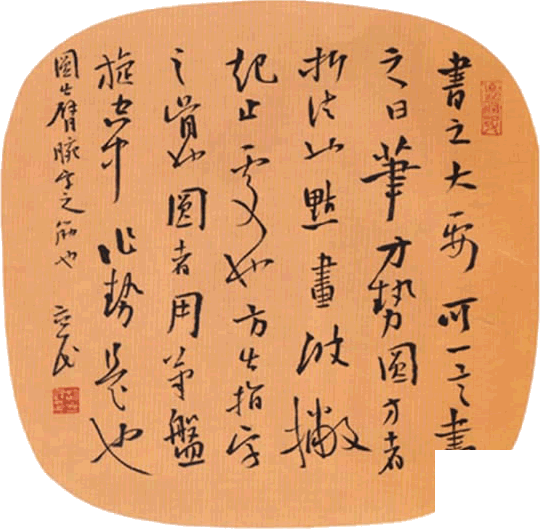 書之大要可一言盡
之曰筆方勢圓方者
折法也點畫波撇
起止處也方出指字
之骨也圓者用筆盤
旋空中作勢是也
圓出臂腕字之筋也